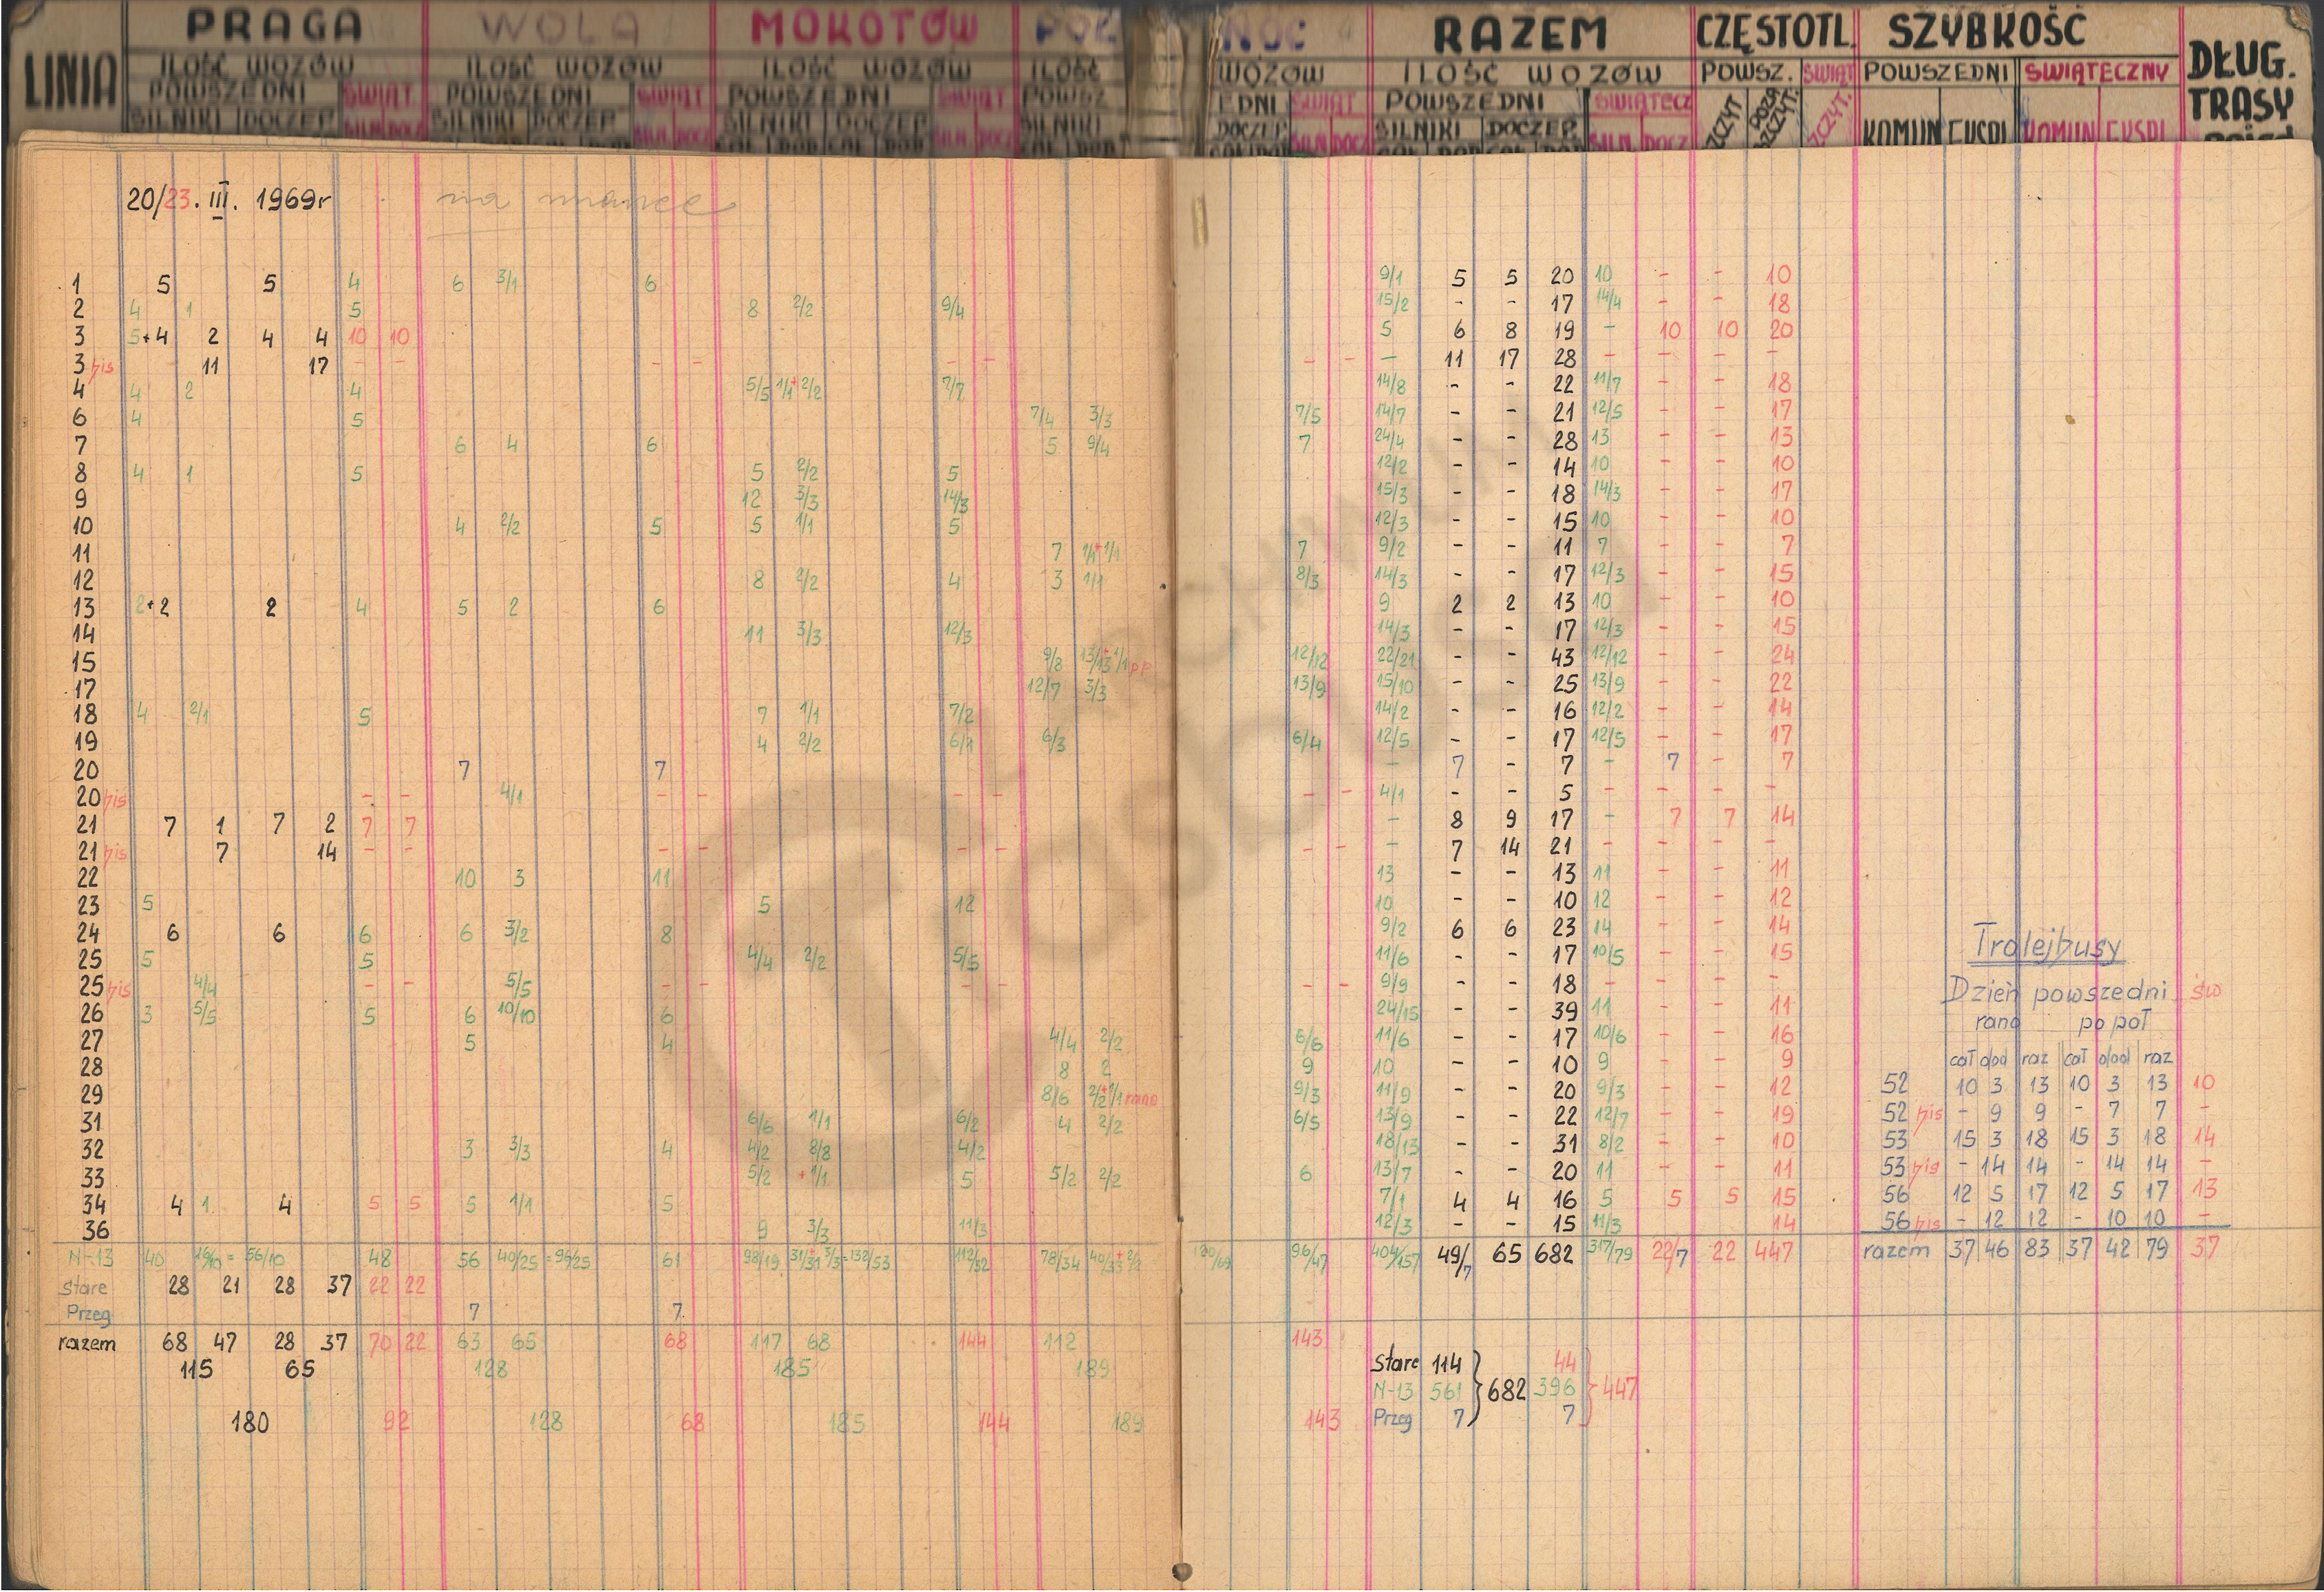 LINIA PRAGA WOLA MOKOTÓW PÓŁNOC RAZEM CZĘSTOTL. SZYBKOŚĆ DŁUG. TRASY
ILOŚĆ WOZÓW ILOŚĆ WOZÓW ILOŚĆ WOZÓW ILOŚĆ WOZÓW ILOŚĆ WOZÓW POWSZ. ŚWIĄT POWSZEDNI ŚWIĄTECZNY
POWSZEDNI ŚWIĄT. POWSZEDNI ŚWIĄT POWSZEDNI ŚWIĄT. POWSZ EDNI ŚWIĄT POWSZEDNI ŚWIĄTECZ SZCZYT POZA SZCZYT. SZCZYT.
SILNIKI DOCZEP SILN DOCZ SILNIKI DOCZEP SILN. DOCZ SILNIKI DOCZEP SILN DOCZ SILNIKI DOCZEP SILN DOCZ SILNIKI DOCZEP SILN DOCZ KOMUN EKSPL KOMUN EKSPL
20/23. III. 1969r na mance
1 5 5 4 6 3/1 6 9/1 5 5 20 10 - - 10
2 4 1 5 8 2/2 9/4 15/2 - - 17 14/4 - - 18
3 5+4 2 4 4 10 10 5 6 8 19 - 10 10 20
3 bis 11 17 - - - - - - - - - 11 17 28 - - - -
4 4 2 4 5/5 1/1+2/2 7/7 14/8 - - 22 11/7 - - 18
6 4 5 7/4 3/3 7/5 14/7 - - 21 12/5 - - 17
7 6 4 6 5 9/4 7 24/4 - - 28 13 - - 13
8 4 1 5 5 2/2 5 12/2 - - 14 10 - - 10
9 12 3/3 14/3 15/3 - - 18 14/3 - - 17
10 4 2/2 5 5 1/1 5 12/3 - - 15 10 - - 10
11 7 1/1+1/1 7 9/2 - - 11 7 - - 7
12 8 2/2 4 3 1/1 8/3 14/3 - - 17 12/3 - - 15
13 2+2 2 4 5 2 6 9 2 2 13 10 - - 10
14 11 3/3 12/3 14/3 - - 17 12/3 - - 15
15 9/8 13/13+1/1 pp 12/12 22/21 - - 43 12/12 - - 24
17 12/7 3/3 13/9 15/10 - - 25 13/9 - - 22
18 4 2/1 5 7 1/1 7/2 14/2 - - 16 12/2 - - 14
19 4 2/2 6/1 6/3 6/4 12/5 - - 17 12/5 - - 17
20 7 7 - 7 - 7 - 7 - 7
20 bis - - 4/1 - - - - - - 4/1 - - 5 - - - -
21 7 1 7 2 7 7 - 8 9 17 - 7 7 14
21 bis 7 14 - - - - - - - - - 7 14 21 - - - -
22 10 3 11 13 - - 13 11 - - 11
23 5 5 12 10 - - 10 12 - - 12
24 6 6 6 6 3/2 8 9/2 6 6 23 14 - - 14
25 5 5 4/4 2/2 5/5 11/6 - - 17 10/5 - - 15
25 bis 4/4 - - 5/5 - - - - - - 9/9 - - 18 - - - -
26 3 5/5 5 6 10/10 6 24/15 - - 39 11 - - 11
27 5 4 4/4 2/2 6/6 11/6 - - 17 10/6 - - 16
28 8 2 9 10 - - 10 9 - - 9
29 8/6 2/2+1/1 rano 9/3 11/9 - - 20 9/3 - - 12
31 6/6 1/1 6/2 4 2/2 6/5 13/9 - - 22 12/7 - - 19
32 3 3/3 4 4/2 8/8 4/2 18/13 - - 31 8/2 - - 10
33 5/2 +1/1 5 5/2 2/2 6 13/7 - - 20 11 - - 11
34 4 1 4 5 5 5 1/1 5 7/1 4 4 16 5 5 5 15
36 9 3/3 11/3 12/3 - - 15 11/3 14
N-13 40 16/10 = 56/10 48 56 40/25 = 96/25 61 98/19 31/31+3/3=132/53 112/32 78/34 40/33+2/2 120/69 96/47 404/157 49/7 65 682 317/79 22/7 22 447
Stare 28 21 28 37 22 22
Przeg 7 7
razem 68 47 28 37 70 22 63 65 68 117 68 144 112 143
115 65 128 185 189
180 92 128 68 185 144 189 143
Stare 114 44
N-13 561 682 396 447
Przeg 7 7
Trolejbusy
Dzień powszedni św
rano po poł
cał dod raz cał dod raz
52 10 3 13 10 3 13 10
52 bis - 9 9 - 7 7 -
53 15 3 18 15 3 18 14
53 bis - 14 14 - 14 14 -
56 12 5 17 12 5 17 13
56 bis - 12 12 - 10 10 -
razem 37 46 83 37 42 79 37